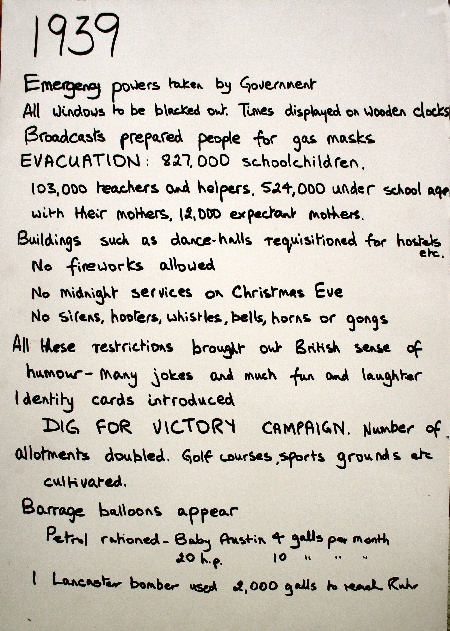 1939
Emergency powers taken by Government
All windows to be blacked out. Times displayed on wooden clocks
Broadcasts prepared people for gas masks
EVACUATION: 827,000 schoolchildren,
103,000 teachers and helpers, 524,000 under school age
with their mothers, 12,000 expectant mothers.
Buildings such as dance-halls requisitioned for hostels
etc.
No fireworks allowed
No midnight services on Christmas Eve
No sirens, hooters, whistles, bells, horns or gongs
All these restrictions brought out British sense of
humour - many jokes and much fun and laughter
Identity cards introduced
DIG FOR VICTORY CAMPAIGN. Number of
allotments doubled. Golf courses, sports grounds etc
cultivated.
Barrage balloons appear
Petrol rationed - Baby Austin 4 galls per month
20 h.p. 10 " " "
1 Lancaster bomber used 2,000 galls to reach Ruhr